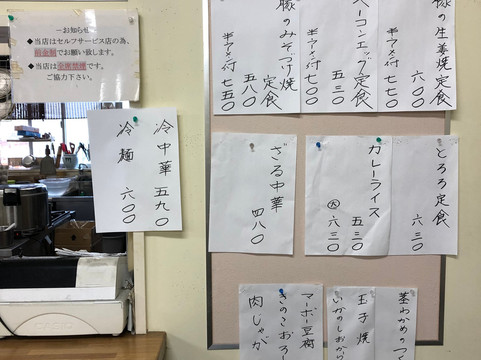 －お知らせ－
◆当店はセルフサービス店の為、
前金制でお願い致します。
◆当店は全席禁煙です。
ご協力下さい。
の生姜焼定食
六〇〇
半アメ付 七七〇
ーコンエッグ定食
五三〇
半アメ付 七〇〇
豚のみそづけ焼
定食
五八〇
半アメ付 七五〇
冷中華 五九〇
冷麺 六〇〇
とろろ定食
六三〇
カレーライス
五三〇
大 六三〇
ざる中華
四八〇
茎わかめのつ
玉子焼
いかのしおから
マーボー豆腐
きのこおろし
肉じゃが